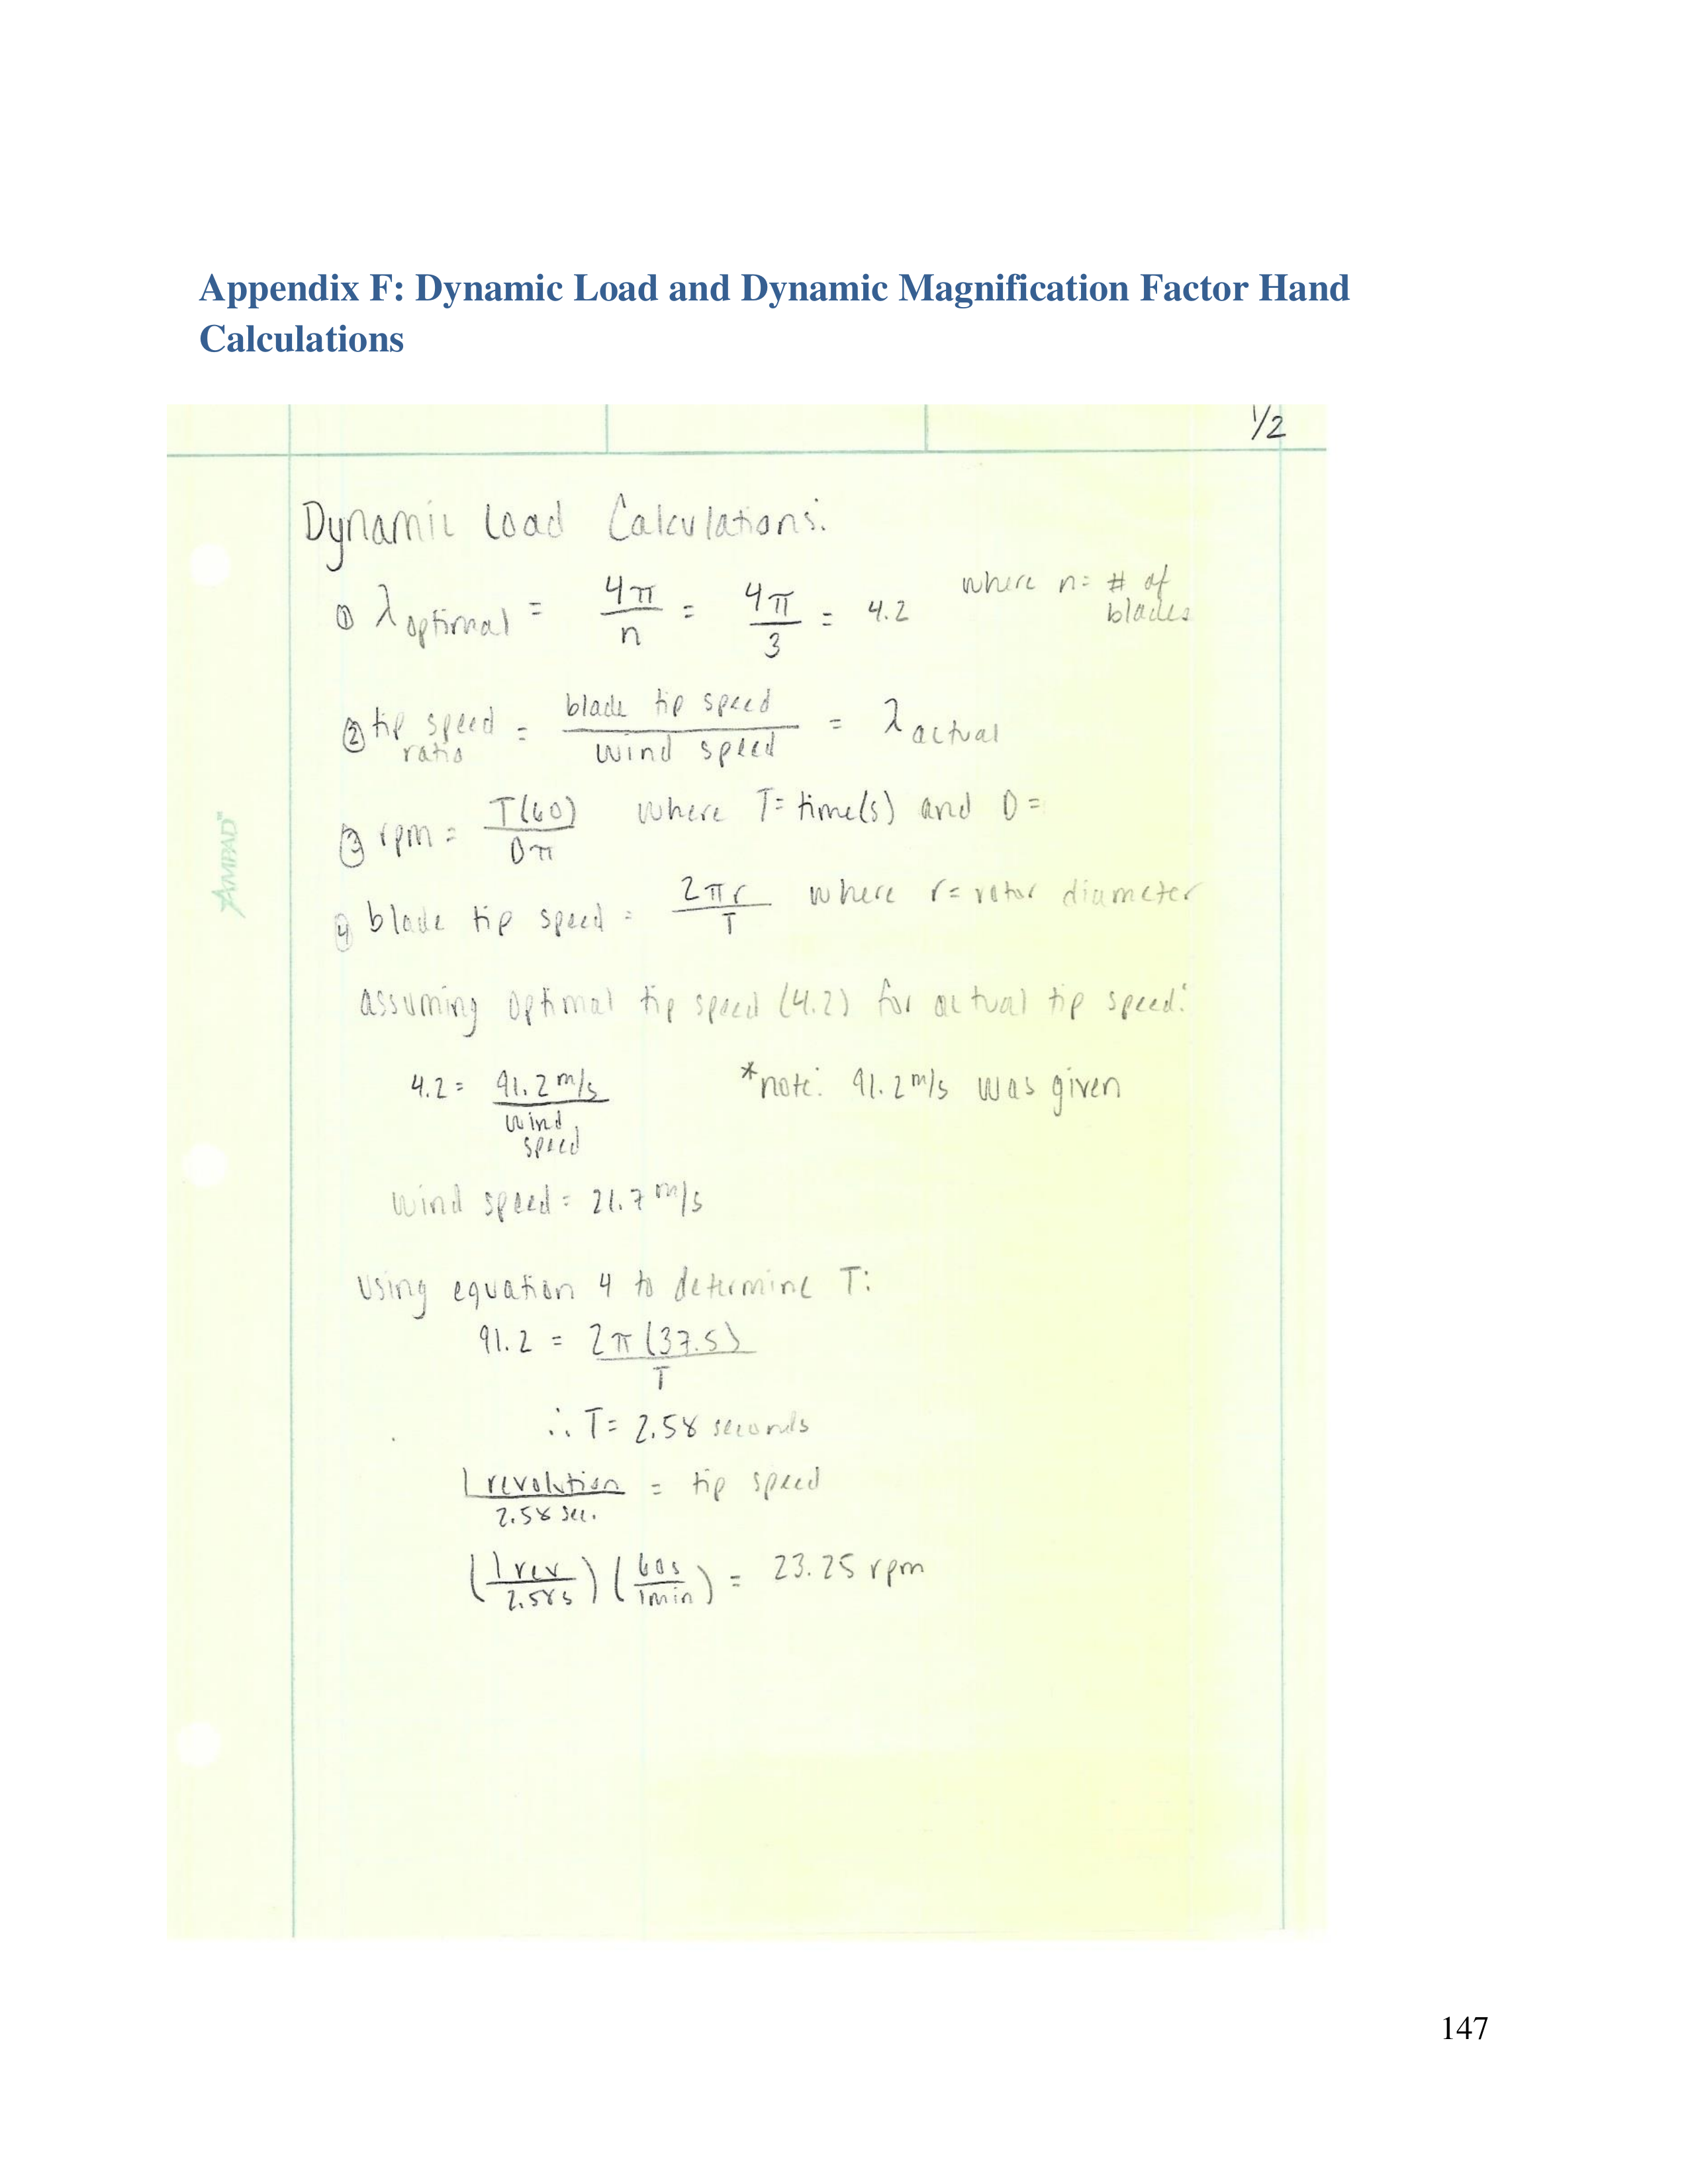 Appendix F: Dynamic Load and Dynamic Magnification Factor Hand
Calculations
1/2
Dynamic Load Calculations:
① λ optimal = 4π/n = 4π/3 = 4.2 where n = # of blades
② tip speed ratio = blade tip speed / wind speed = λ actual
③ rpm = T(60)/Dπ where T = time(s) and D =
④ blade tip speed = 2πr/T where r = rotor diameter
assuming optimal tip speed (4.2) for actual tip speed:
4.2 = 91.2 m/s / wind speed *note: 91.2 m/s was given
wind speed = 21.7 m/s
Using equation 4 to determine T:
91.2 = 2π(37.5)/T
∴ T = 2.58 seconds
1 revolution / 2.58 sec. = tip speed
(1 rev / 2.58s)(60s / 1min) = 23.25 rpm
AMPAD™
147